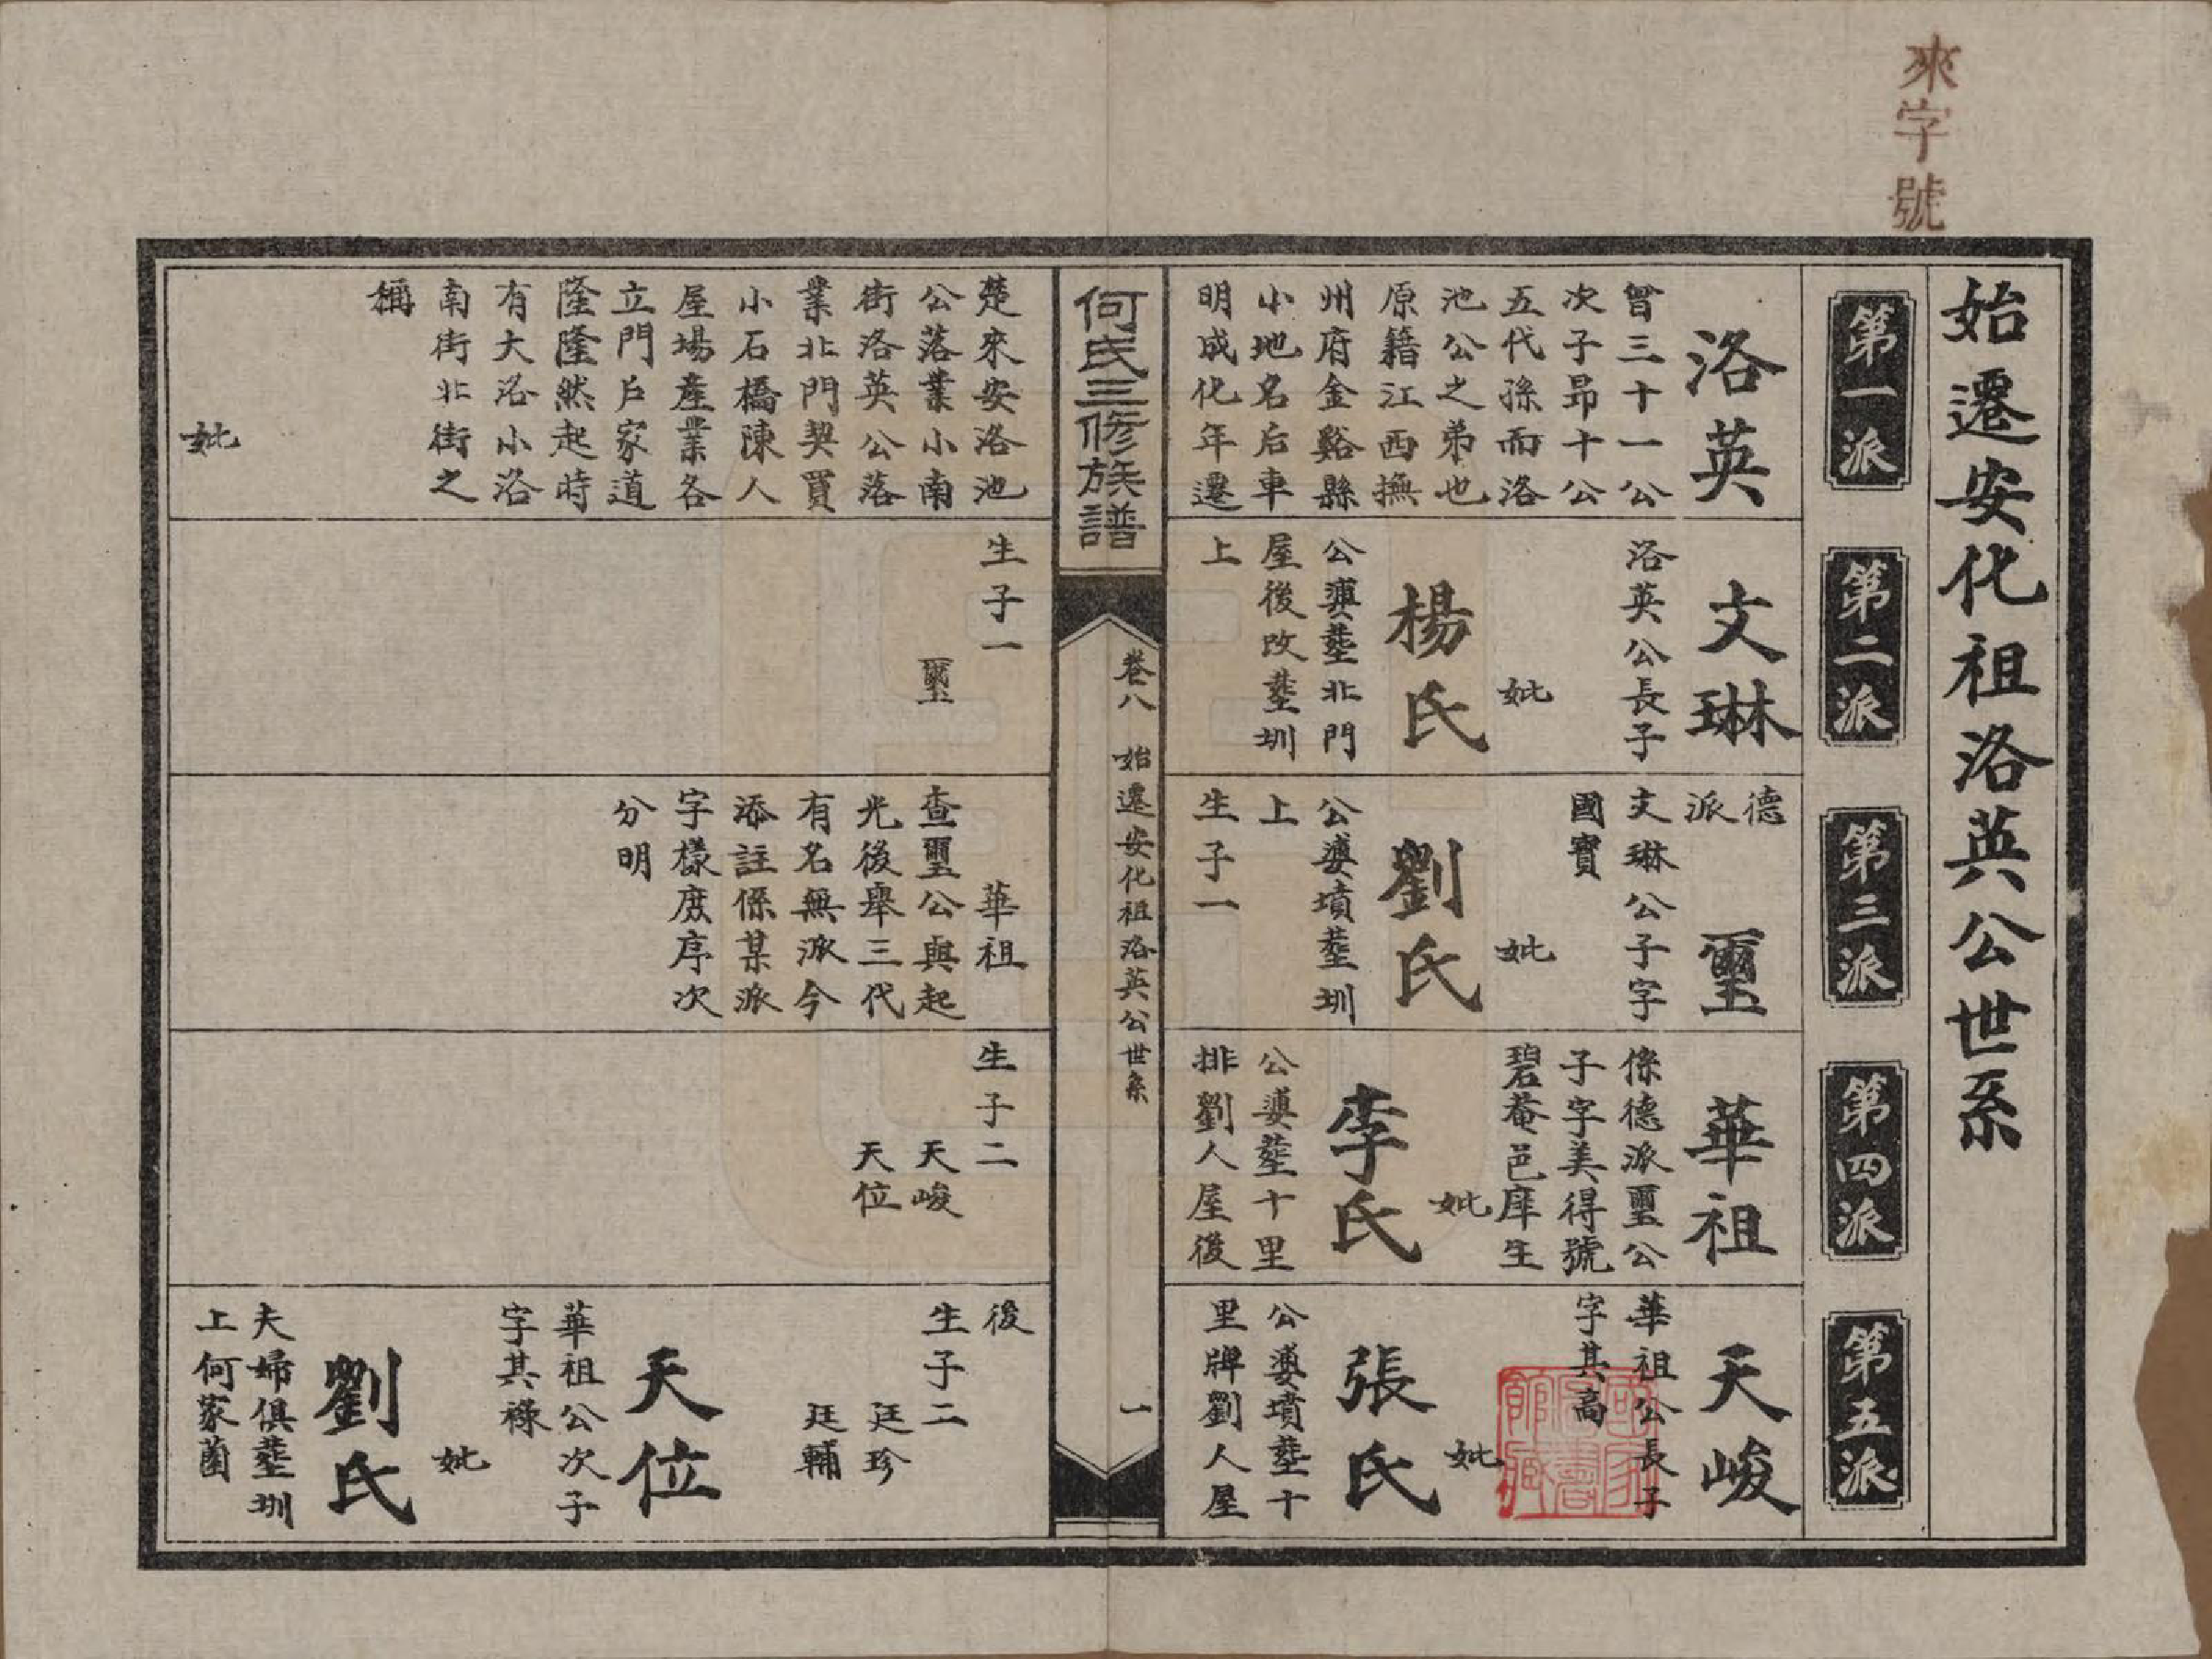 來字號
始遷安化祖洛英公世系
第一派
第二派
第三派
第四派
第五派
洛英
曾三十一公
次子昂十公
五代孫而洛
池公之弟也
原籍江西撫
州府金谿縣
小地名后車
明成化年遷
文琳
洛英公長子
妣
楊氏
公塟北門
屋後改塟圳
上
德
派
璽
文琳公子字
國寶
妣
劉氏
公婆墳塟圳
上
生子一
華祖
係德派璽公
子字美得號
碧菴邑庠生
妣
李氏
公婆塟十里
排劉人屋後
天峻
華祖公長子
字其高
妣
張氏
公婆墳塟十
里牌劉人屋
何氏三修族譜
卷八 始遷安化祖洛英公世系
一
楚來安洛池
公落業小南
街洛英公落
業北門契買
小石橋陳人
屋場產業各
立門戶家道
隆隆然起時
有大洛小洛
南街北街之
稱
妣
生子一
璽
華祖
查璽公與起
光後舉三代
有名無派今
添註係某派
字樣庶序次
分明
生子二
天峻
天位
後
生子二
廷珍
廷輔
天位
華祖公次子
字其祿
妣
劉氏
夫婦俱塟圳
上何家菌